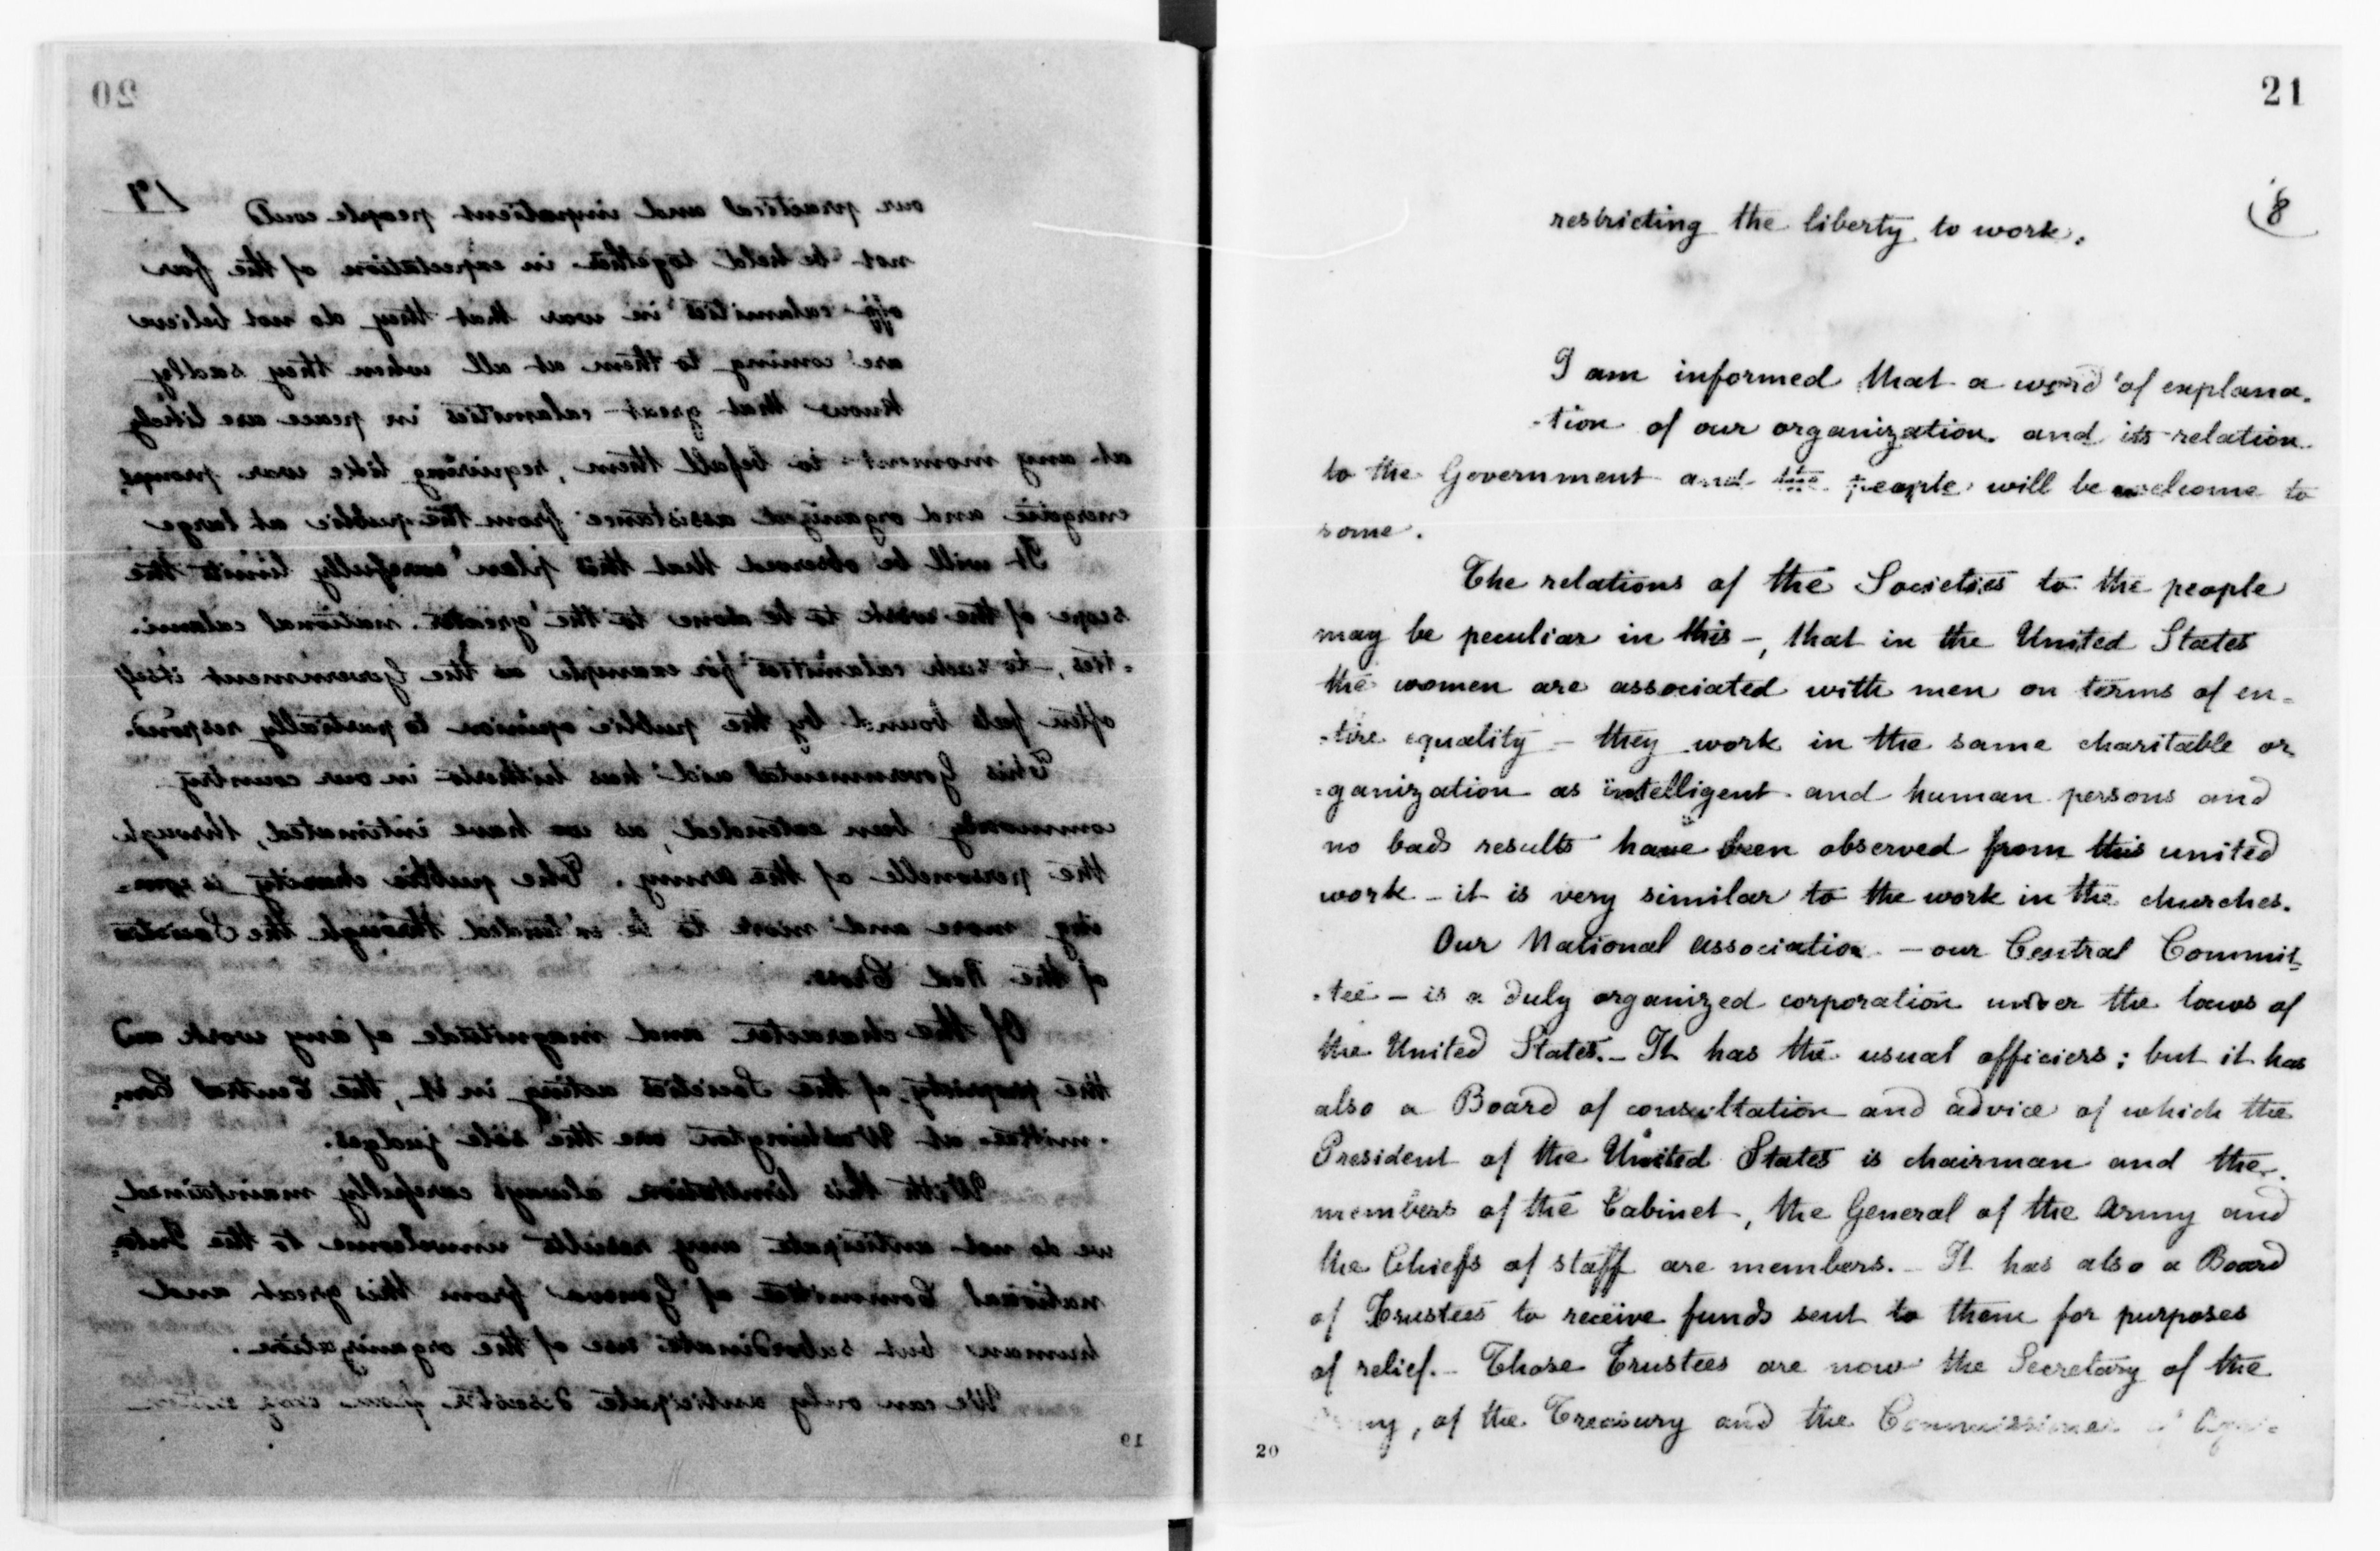 20
17
our practical and impatient people could
not be held together in expectation of the far
off calamities in war that they do not believe
are coming to them at all when they sadly
know that great calamities in peace are likely
at any moment to befall them, requiring like war prompt,
energetic and organized assistance from the public at large
It will be observed that this plan carefully limits the
scope of the work to be done to the greater national calami-
-ties, - to such calamities for example as the Government itself
often feels bound by the public opinion to partially respond.
This Governmental aid has hitherto in our country
commonly been extended, as we have intimated, through
the personelle of the army. The public charity is
ing more and more to be extended through the Societies
of the Red Cross.
Of the character and magnitude of any work and
the propriety of the Societies acting in it, the Central Com
-mittee at Washington are the sole judges.
With this limitation always carefully maintained,
we do not anticipate any results unwelcome to the Inter-
national Committee of Geneva from this great and
human but subordinate use of the organization.
We can only anticipate disaster from any
19
21
(8
restricting the liberty to work.
I am informed that a word of explana-
-tion of our organization and its relation
to the Government and the people will be welcome to
some.
The relations of the Societies to the people
may be peculiar in this -, that in the United States
the women are associated with men on terms of en-
-tire equality - they work in the same charitable or
=ganization as intelligent and human persons and
no bad results have been observed from this united
work - it is very similar to the work in the churches.
Our National Association - our Central Commit
-tee - is a duly organized corporation under the laws of
the United States. - It has the usual officiers; but it has
also a Board of consultation and advice of which the
President of the United States is chairman and the
members of the Cabinet, the General of the Army and
the Chiefs of staff are members. - It has also a Board
of Trustees to receive funds sent to them for purposes
of relief. - Those Trustees are now the Secretary of the
, of the Treasury and the Commissioner
20